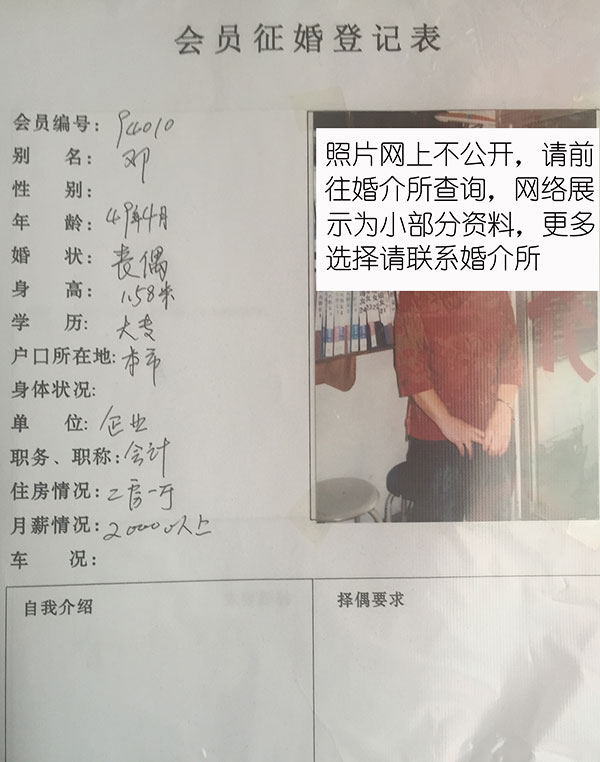 会员征婚登记表
会员编号：94010
别 名：邓
性 别：
年 龄：49年4月
婚 状：丧偶
身 高：1.58米
学 历：大专
户口所在地：本市
身体状况：
单 位：企业
职务、职称：会计
住房情况：二房一厅
月薪情况：2000以上
车 况：
自我介绍
择偶要求
照片网上不公开，请前
往婚介所查询，网络展
示为小部分资料，更多
选择请联系婚介所